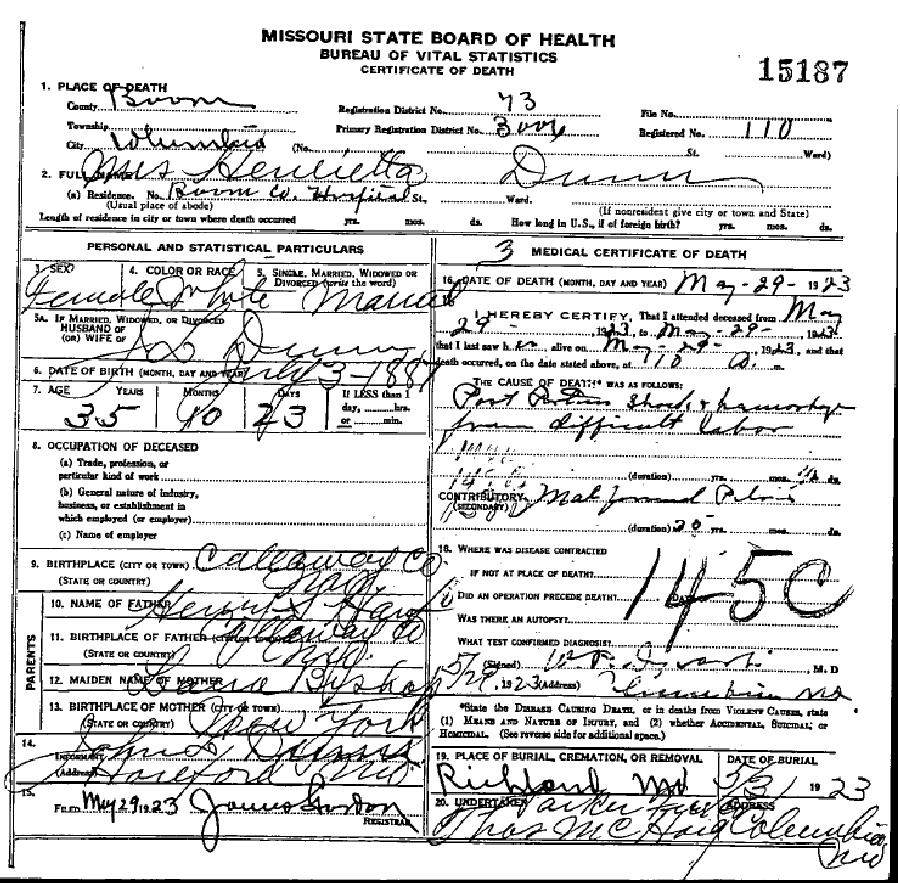 MISSOURI STATE BOARD OF HEALTH
BUREAU OF VITAL STATISTICS
CERTIFICATE OF DEATH
15187
1. PLACE OF DEATH
County Boone Registration District No. 73 File No.
Township Primary Registration District No. 3006 Registered No. 110
City Columbia (No. St. Ward)
2. FULL NAME Mrs Henrietta Dunn
(a) Residence. No. Boone Co. Hospital St., Ward.
(Usual place of abode) (If nonresident give city or town and State)
Length of residence in city or town where death occurred yrs. mos. ds. How long in U.S., if of foreign birth? yrs. mos. ds.
PERSONAL AND STATISTICAL PARTICULARS
3. SEX 4. COLOR OR RACE 5. SINGLE, MARRIED, WIDOWED OR DIVORCED (write the word)
Female White Married
5A. IF MARRIED, WIDOWED, OR DIVORCED
HUSBAND OF
(OR) WIFE OF Dunn
6. DATE OF BIRTH (MONTH, DAY AND YEAR) July 3-1887
7. AGE YEARS MONTHS DAYS If LESS than 1 day, hrs. or min.
35 10 23
8. OCCUPATION OF DECEASED
(a) Trade, profession, or
particular kind of work
(b) General nature of industry,
business, or establishment in
which employed (or employer)
(c) Name of employer
9. BIRTHPLACE (CITY OR TOWN) Callaway Co
(STATE OR COUNTRY) Mo
PARENTS
10. NAME OF FATHER
11. BIRTHPLACE OF FATHER (CITY OR TOWN) Callaway Co
(STATE OR COUNTRY) Mo.
12. MAIDEN NAME OF MOTHER Bishop
13. BIRTHPLACE OF MOTHER (CITY OR TOWN)
(STATE OR COUNTRY) New York
14. INFORMANT John
(Address) Mo
15. FILED May 29 1923 James Gordon
REGISTRAR
3 MEDICAL CERTIFICATE OF DEATH
16. DATE OF DEATH (MONTH, DAY AND YEAR) May-29- 1923
17. I HEREBY CERTIFY, That I attended deceased from May
29- 1923, to May-29- 1923
that I last saw her alive on May 29- 1923, and that
death occurred, on the date stated above, at 710 a. m.
THE CAUSE OF DEATH* WAS AS FOLLOWS:
Post Partum Shock & hemorrhage
from difficult labor
(duration) yrs. mos. ds.
CONTRIBUTORY Malformed Pelvis
(SECONDARY)
(duration) yrs. mos. ds.
18. WHERE WAS DISEASE CONTRACTED
IF NOT AT PLACE OF DEATH?
DID AN OPERATION PRECEDE DEATH? DATE OF
WAS THERE AN AUTOPSY?
145C
WHAT TEST CONFIRMED DIAGNOSIS?
(Signed) M. D
5/29, 1923 (Address) Columbia Mo
*State the DISEASE CAUSING DEATH, or in deaths from VIOLENT CAUSES, state
(1) MEANS AND NATURE OF INJURY, and (2) whether ACCIDENTAL, SUICIDAL, or
HOMICIDAL. (See reverse side for additional space.)
19. PLACE OF BURIAL, CREMATION, OR REMOVAL DATE OF BURIAL
Richland Mo 5/31 1923
20. UNDERTAKER ADDRESS
Parker
Thos McHaig Columbia
Mo